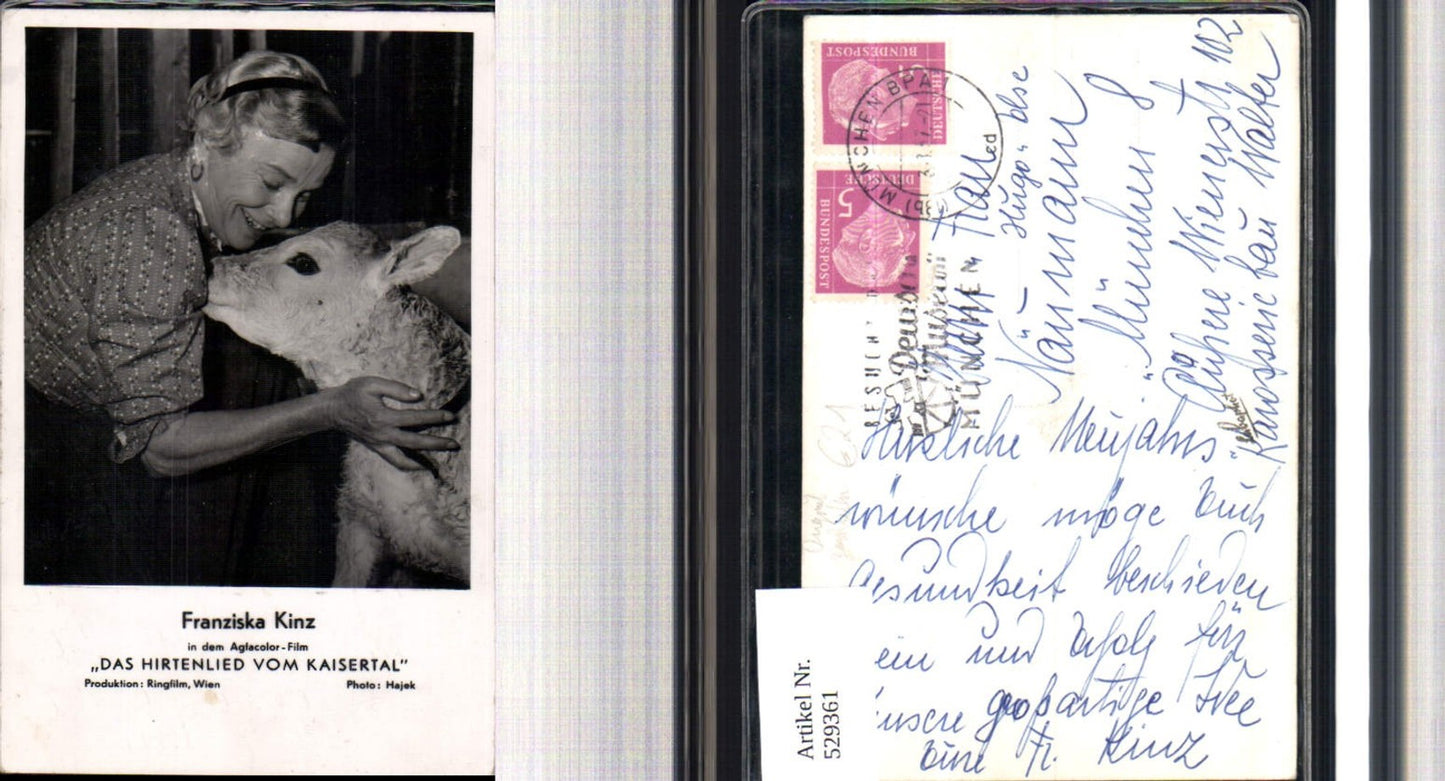 Franziska Kinz
in dem Agfacolor-Film
„DAS HIRTENLIED VOM KAISERTAL"
Produktion: Ringfilm, Wien
Photo: Hajek
DEUTSCHE
BUNDESPOST
5
DEUTSCHE
BUNDESPOST
(13b) MÜNCHEN BPA
BESUCHT
Deutsche
Museum
MÜNCHEN
Hugo
Naumann
München 8
Äußere Wienerstr 102
Karosseriebau Walter
Herzliche Neujahrs
wünsche möge Euch
Gesundheit beschieden
sein und Erfolg für
unsere großartige Idee
Eure Fr. Kinz
621
Artikel Nr.
529361